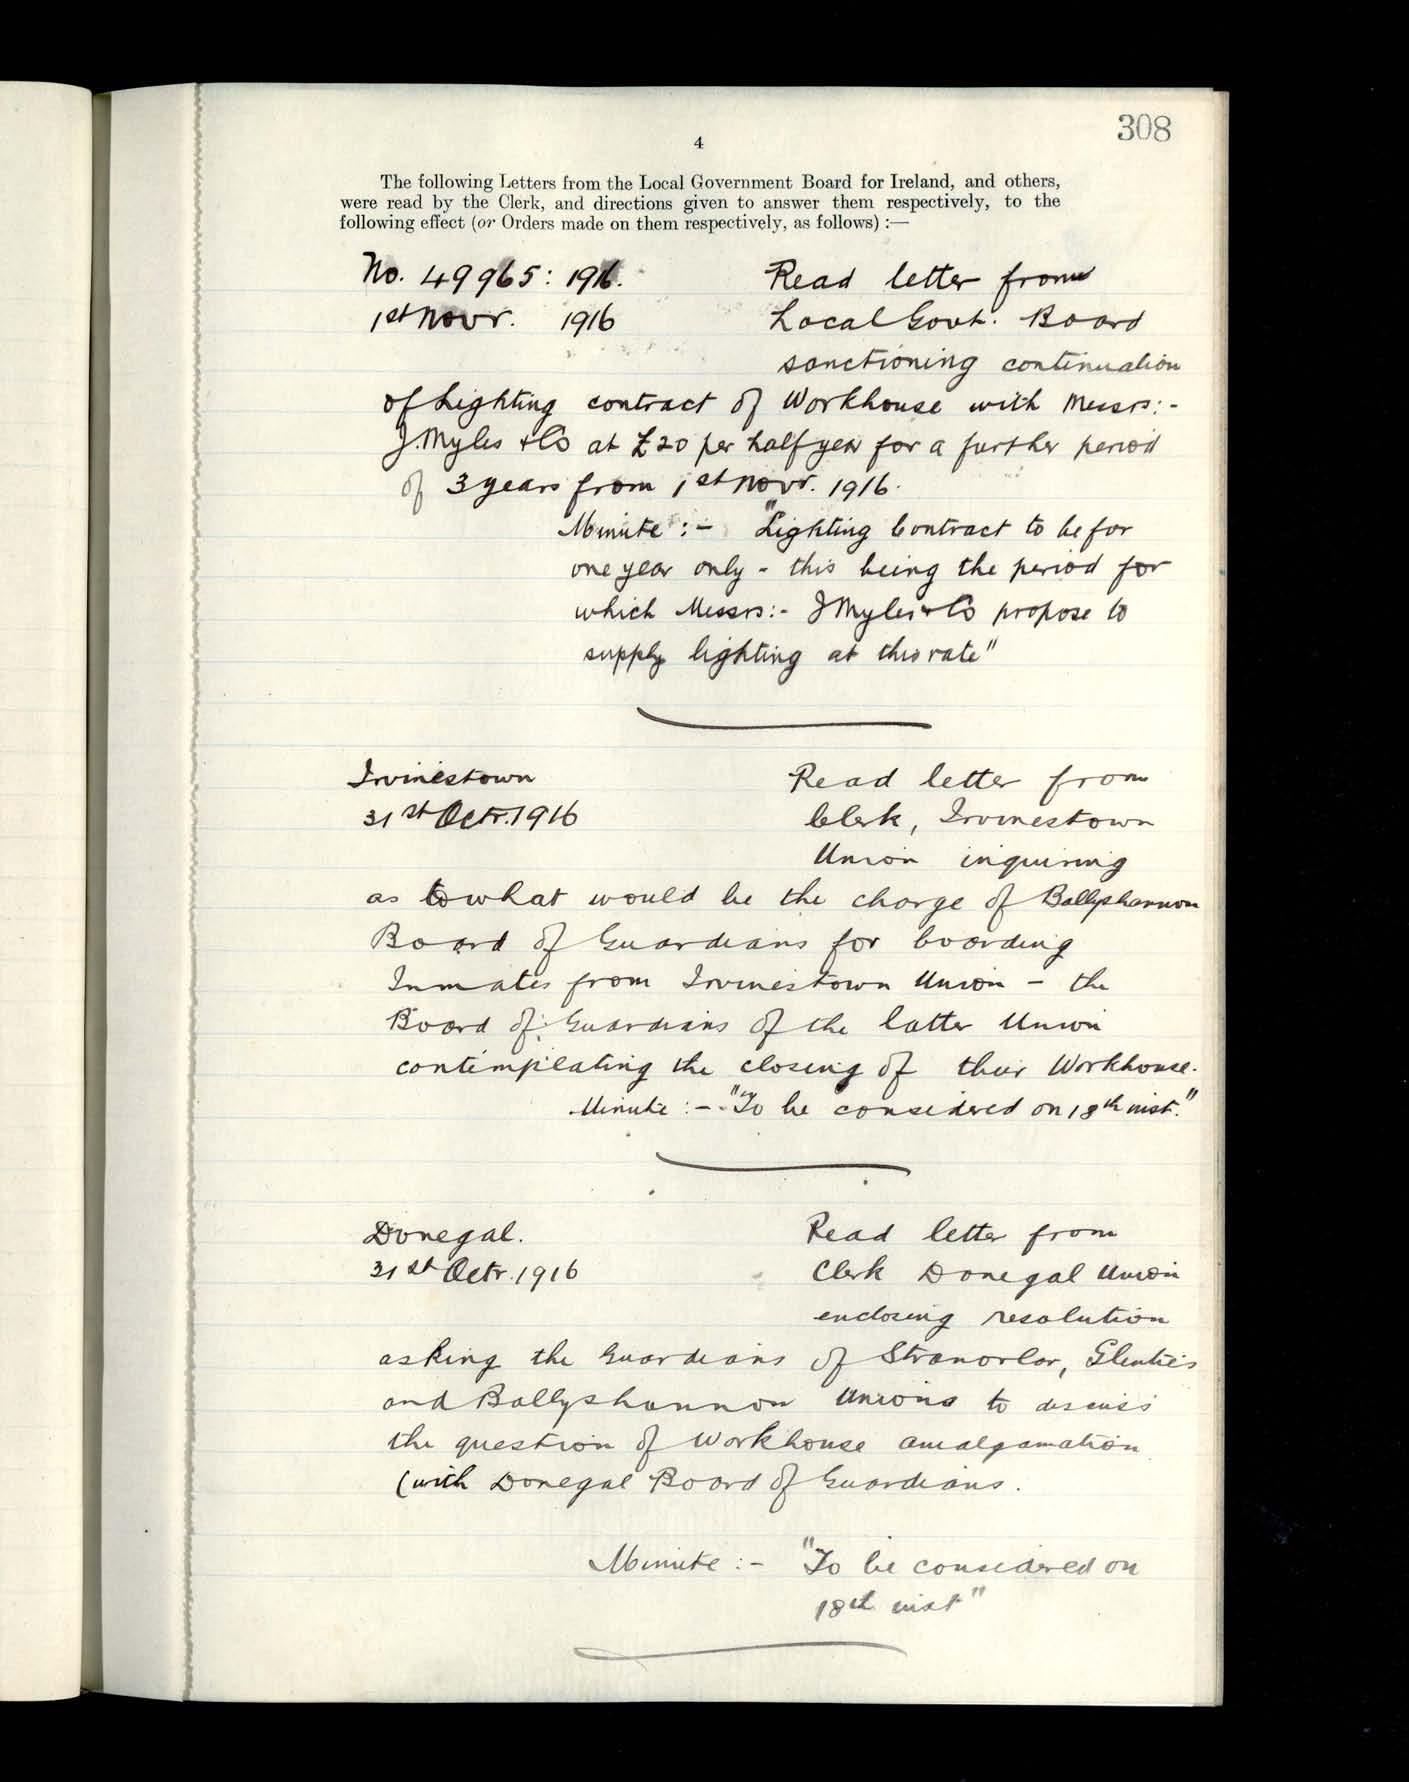 308
4
The following Letters from the Local Government Board for Ireland, and others,
were read by the Clerk, and directions given to answer them respectively, to the
following effect (or Orders made on them respectively, as follows) :—
No. 49965: 1916. Read letter from
1st Novr. 1916 Local Govt. Board
sanctioning continuation
of Lighting contract of Workhouse with Messrs:-
J. Myles & Co at £20 per half year for a further period
of 3 years from 1st Novr. 1916.
Minute :- "Lighting Contract to be for
one year only - this being the period for
which Messrs:- J Myles & Co propose to
supply lighting at this rate"
Irvinestown Read letter from
31st Octr. 1916 Clerk, Irvinestown
Union inquiring
as to what would be the charge of Ballyshannon
Board of Guardians for boarding
Inmates from Irvinestown Union - the
Board of Guardians of the latter Union
contemplating the closing of their Workhouse.
Minute :- "To be considered on 18th inst."
Donegal. Read letter from
31st Octr. 1916 Clerk Donegal Union
enclosing resolution
asking the Guardians of Stranorlar, Glenties
and Ballyshannon Unions to discuss
the question of Workhouse amalgamation
(with Donegal Board of Guardians.
Minute :- "To be considered on
18th inst"